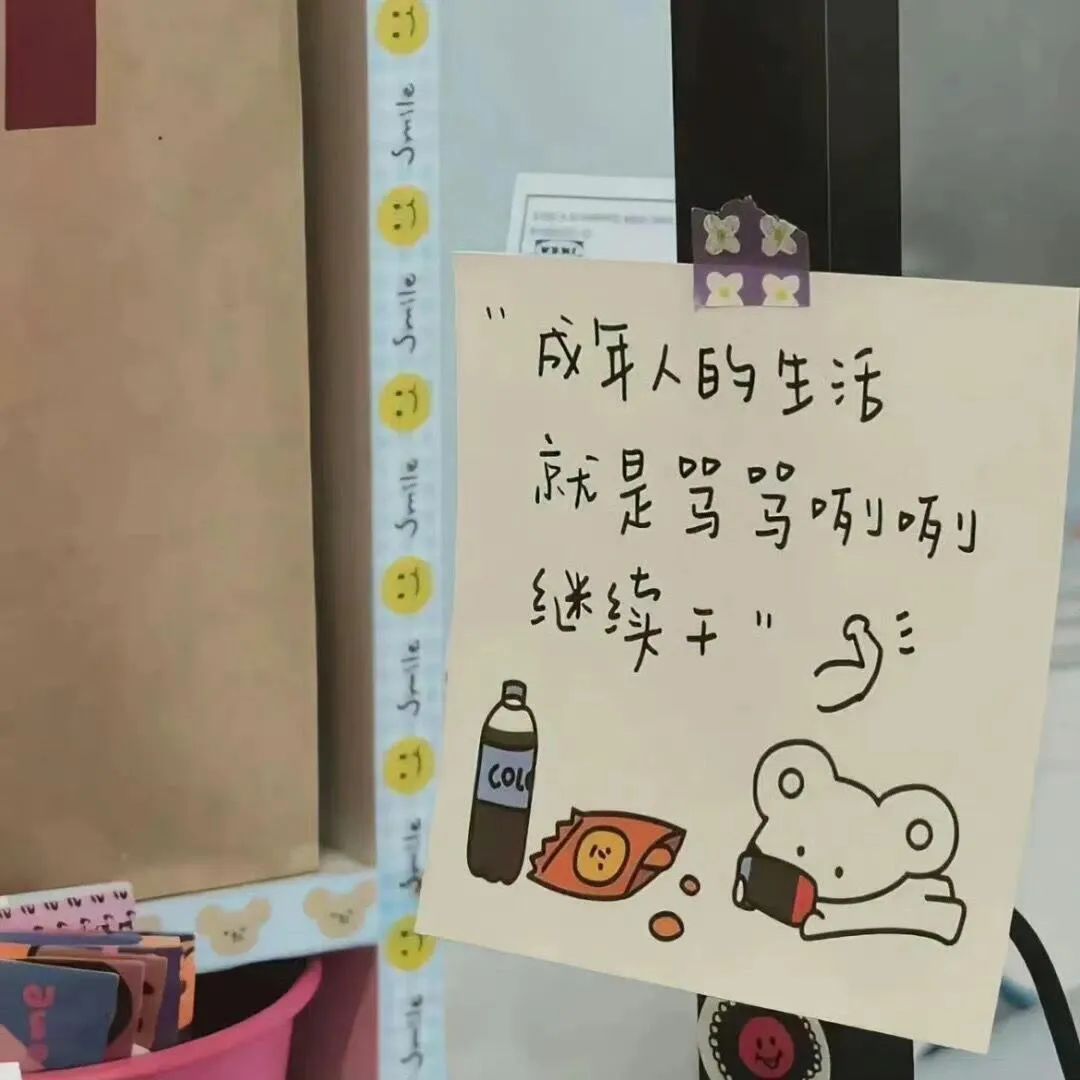 "成年人的生活
就是骂骂咧咧
继续干"
COL
Smile
Smile
Smile
Smile
Smile
Smile
ome